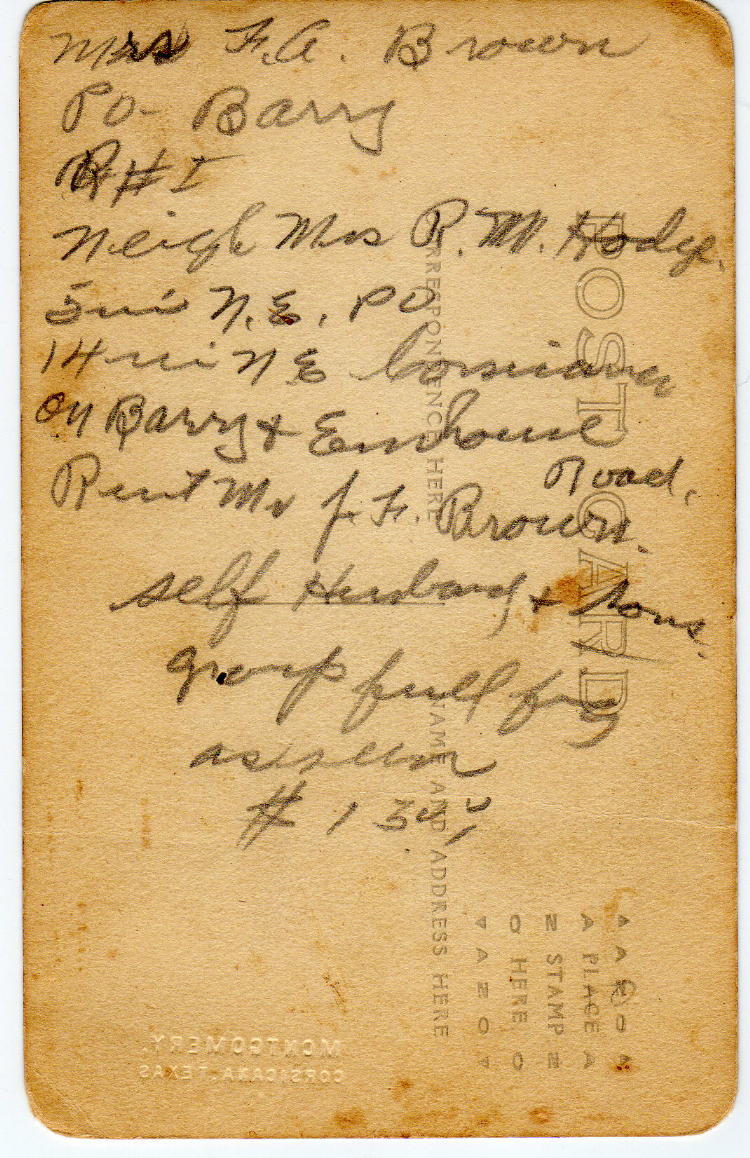 Mrs F.A. Brown
PO- Barry
R#I
Neigh Mrs R. M. Hodge.
5 mi N.E. PO
14 mi N E Corsicana
on Barry + Emhouse
Road.
Rent Mr J. F. Brown.
self Husband + sons.
group full fig
as seen
# 1
POST CARD
CORRESPONDENCE HERE
NAME AND ADDRESS HERE
PLACE
STAMP
HERE
MONTGOMERY,
CORSICANA, TEXAS